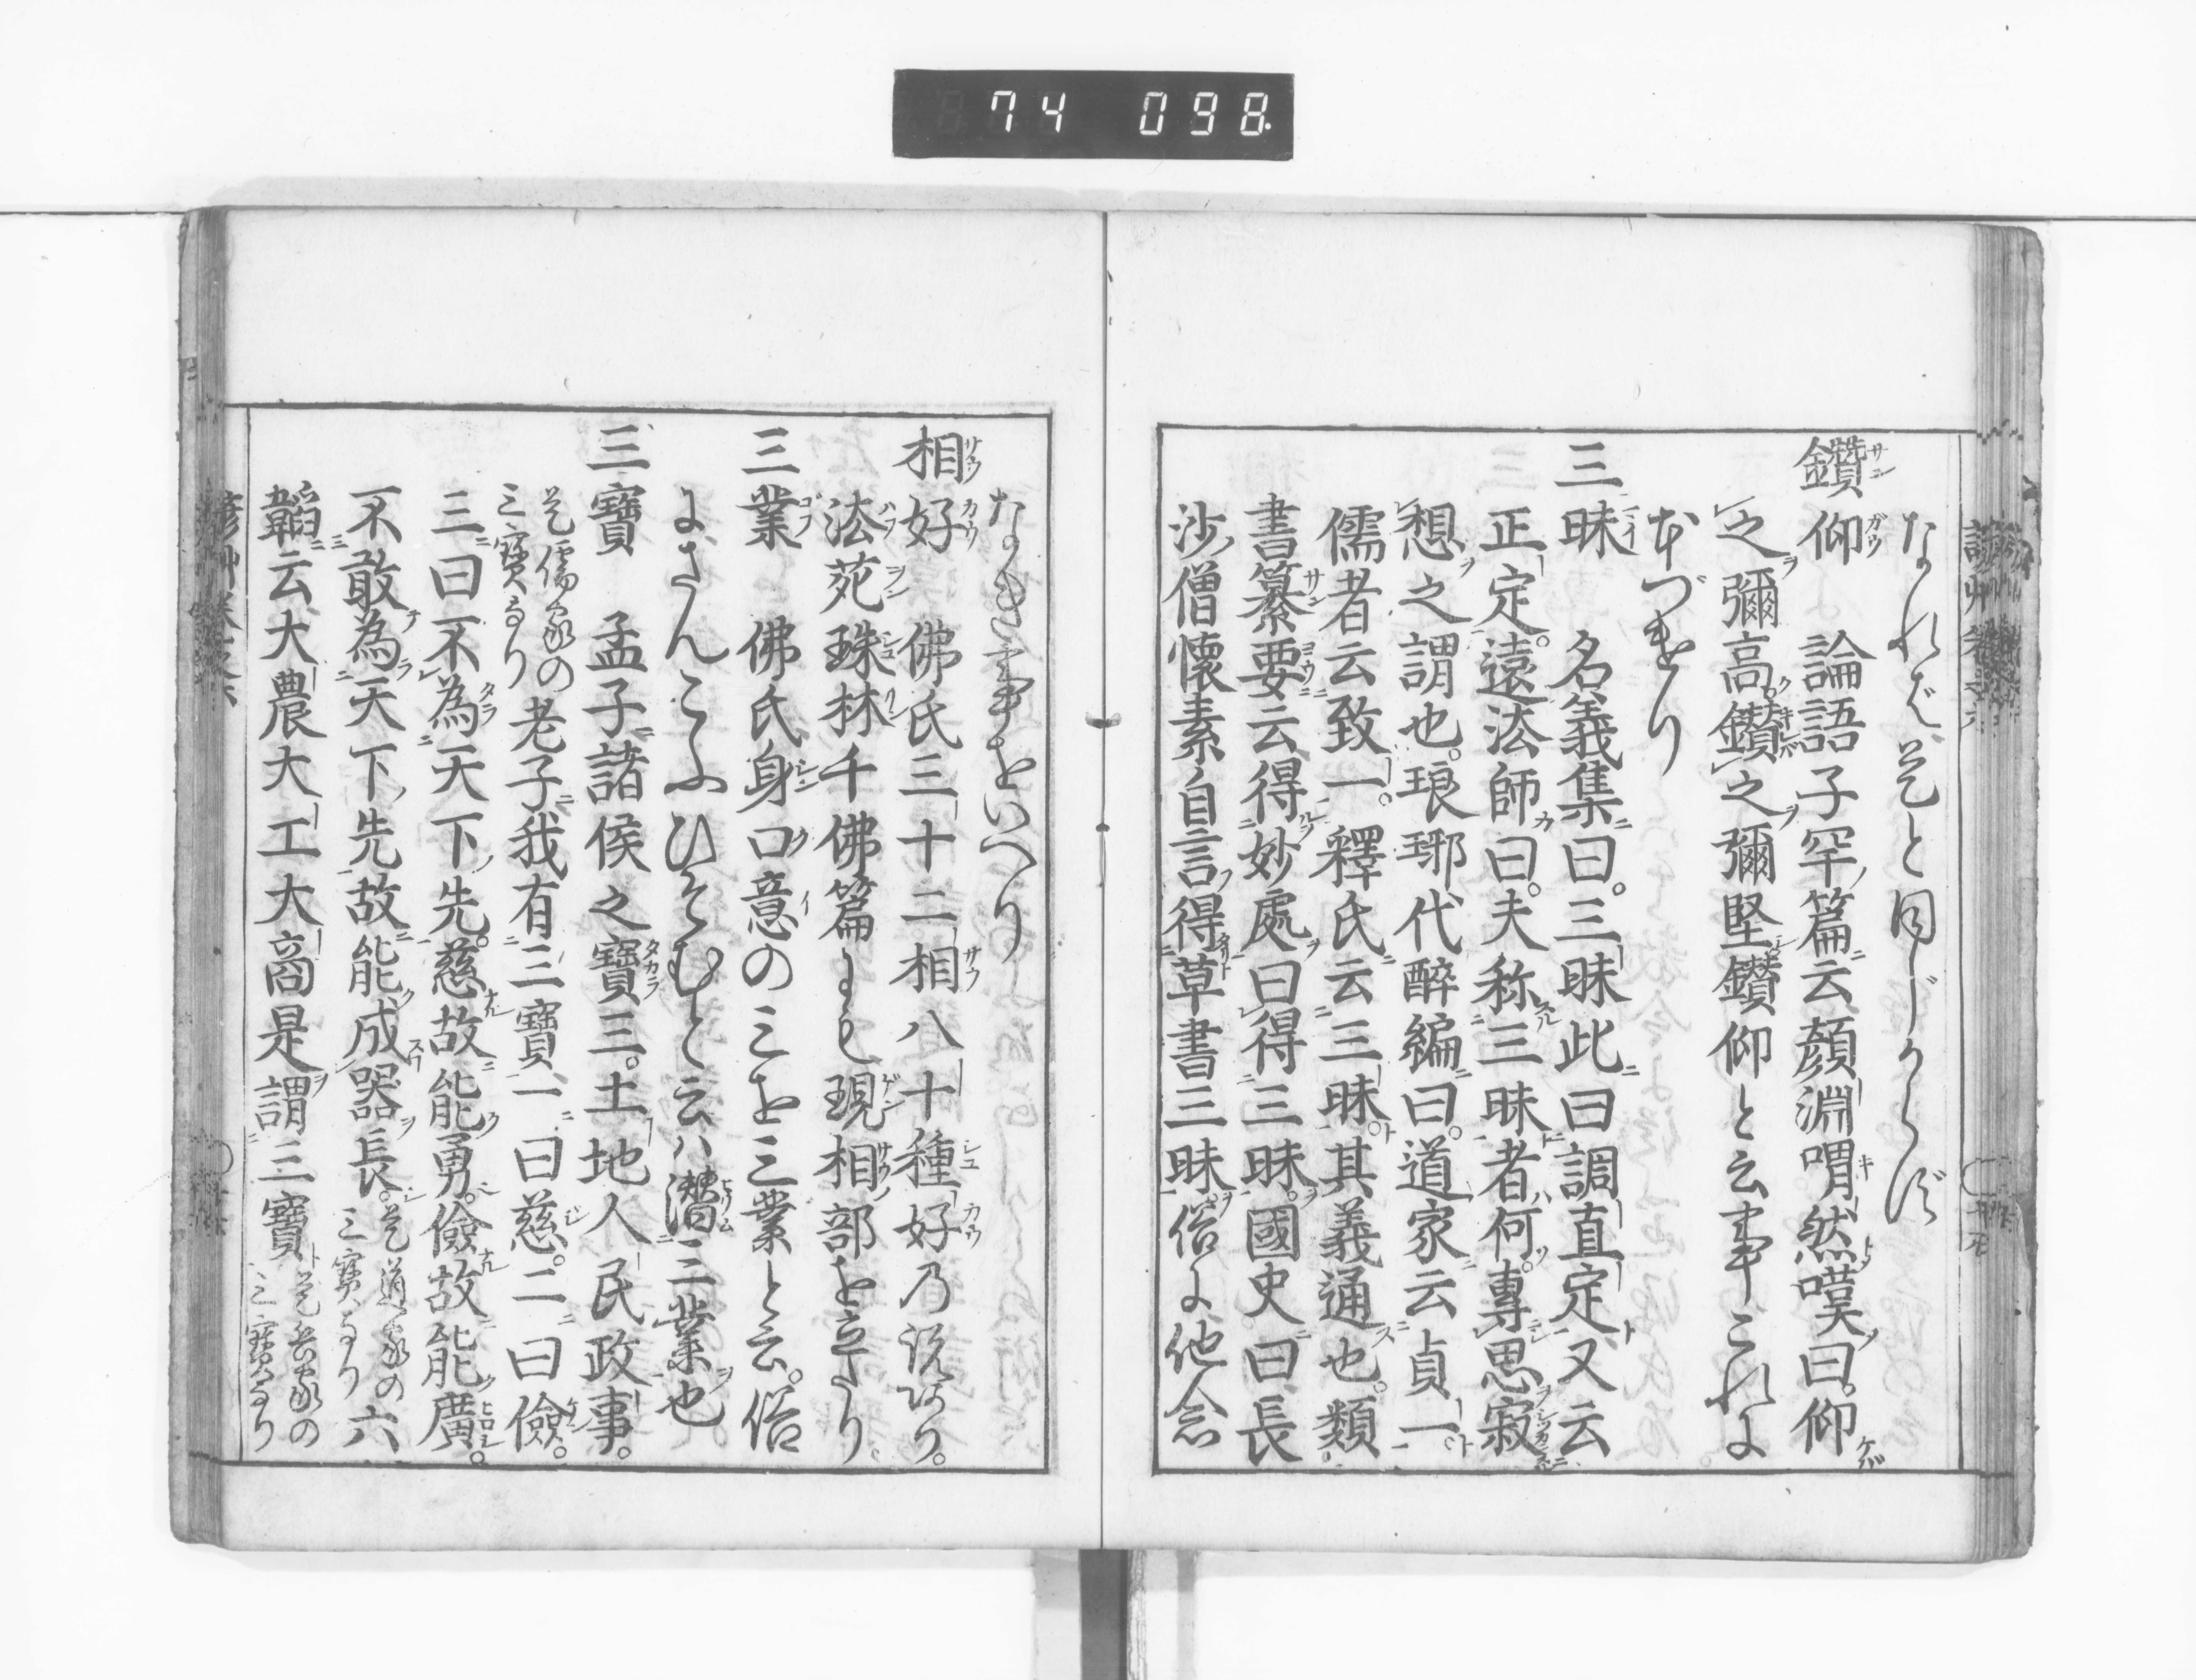 74 098
なれば是と同じからず
鑽仰 論語子罕篇云顔淵喟然嘆曰。仰
之彌高。鑽之彌堅鑽仰と云事これに
もとづけり
三昧 名義集曰。三昧此曰調直定又云
正定。遠法師曰。夫称三昧者何。專思寂
想之謂也。琅琊代醉編曰。道家云貞一。
儒者云致一。釋氏云三昧。其義通也。類
書纂要云得妙處曰得三昧。國史曰長
沙僧懷素自言得草書三昧。俗に他念
なき事をいへり
相好 佛氏三十二相八十種好乃説あり。
法苑珠林千佛篇にも現相部を立たり
三業 佛氏身口意の三を三業と云。俗
にさんごふひそむと云ハ潛三業也
三寶 孟子諸侯之寶三。土地人民政事。
是儒家の
三寶なり
老子我有三寶一曰慈。二曰儉。
三曰不為天下先。慈故能勇。儉故能廣。
不敢為天下先故能成器長。
是道家の
三寶なり
六
韜云大農大工大商是謂三寶
是兵家の
三寶なり